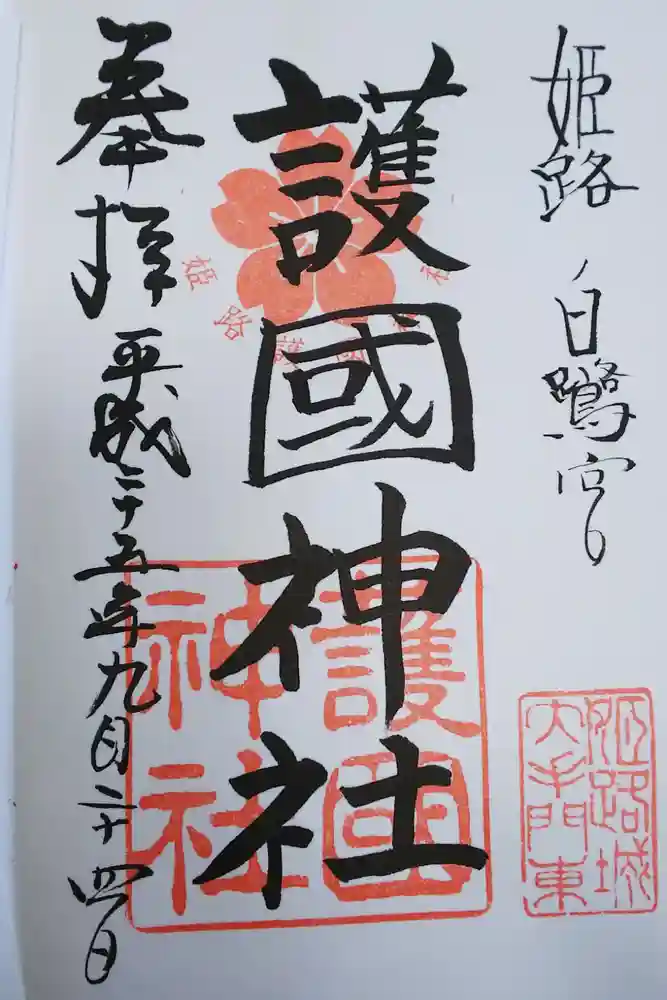 姫路 白鷺宮
護國神社
奉拝 平成二十五年九月二十四日
姫路護
護國
神社
姫路城
大手門東